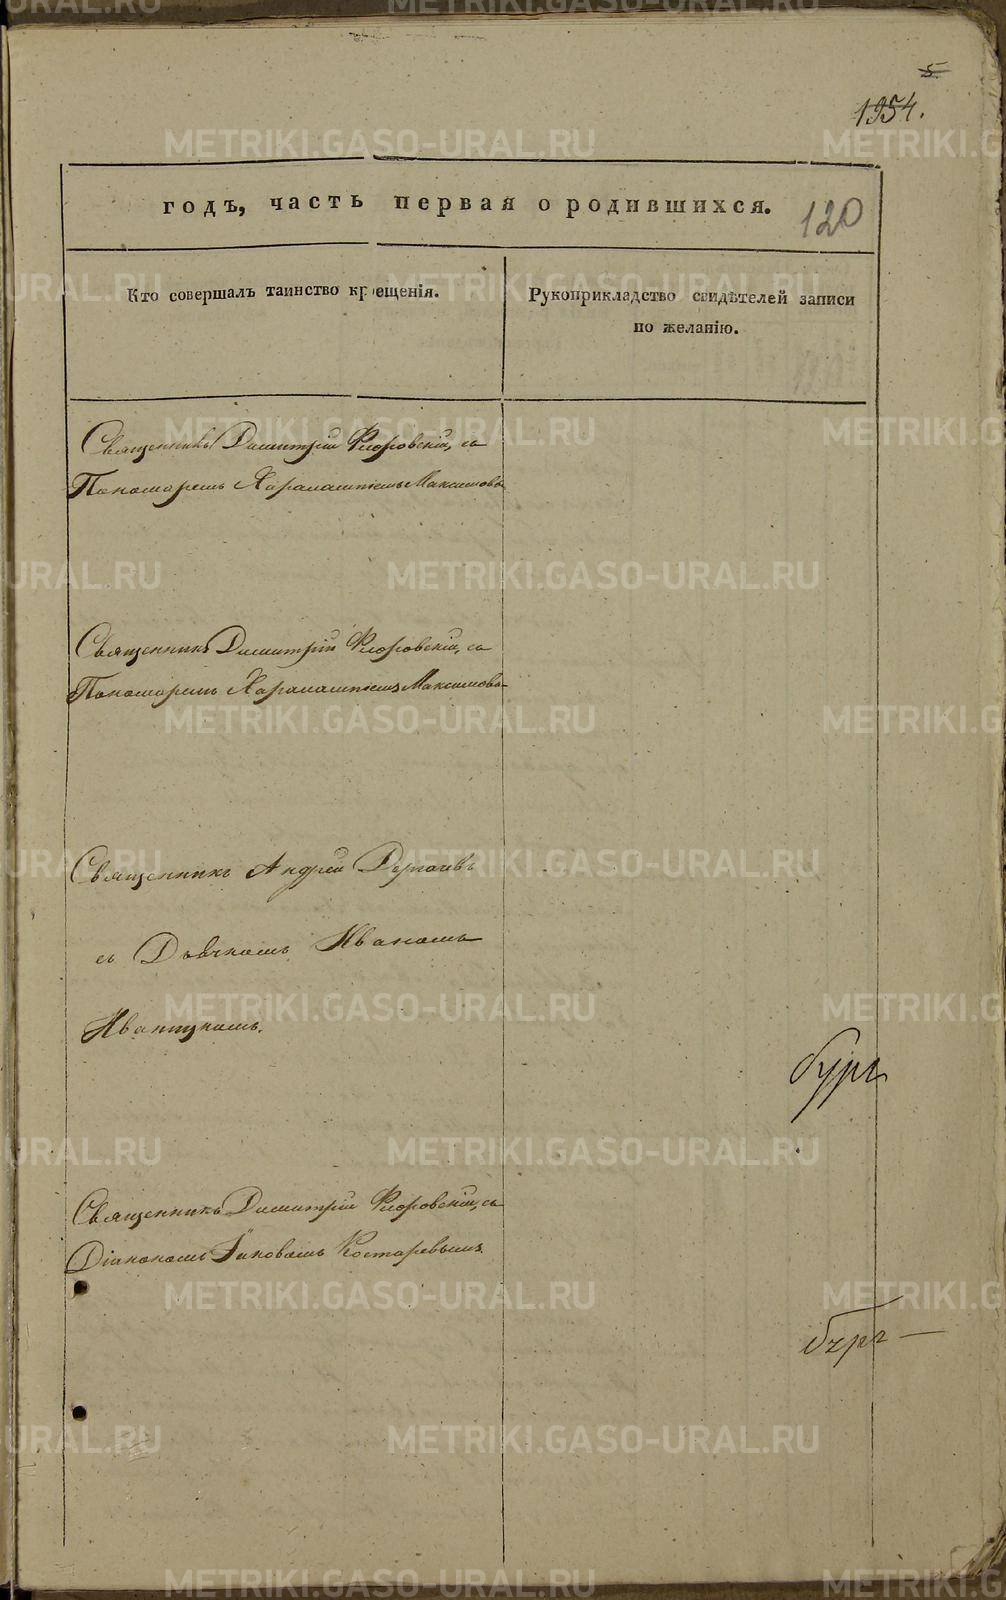 5
1954.
годъ, часть первая о родившихся.
120
Кто совершалъ таинство крещенія.
Рукоприкладство свидѣтелей записи
по желанію.
Священникъ Димитрій Флоровскій, съ
Пономаремъ Харалампіемъ Максимовы
Священникъ Димитрій Флоровскій, съ
Пономаремъ Харалампіемъ Максимовы
Священникъ Андрей
съ Дьячкомъ Иваномъ
Священникъ Димитрій Флоровскій, съ
Діакономъ Іаковомъ Костаревымъ
METRIKI.GASO-URAL.RU